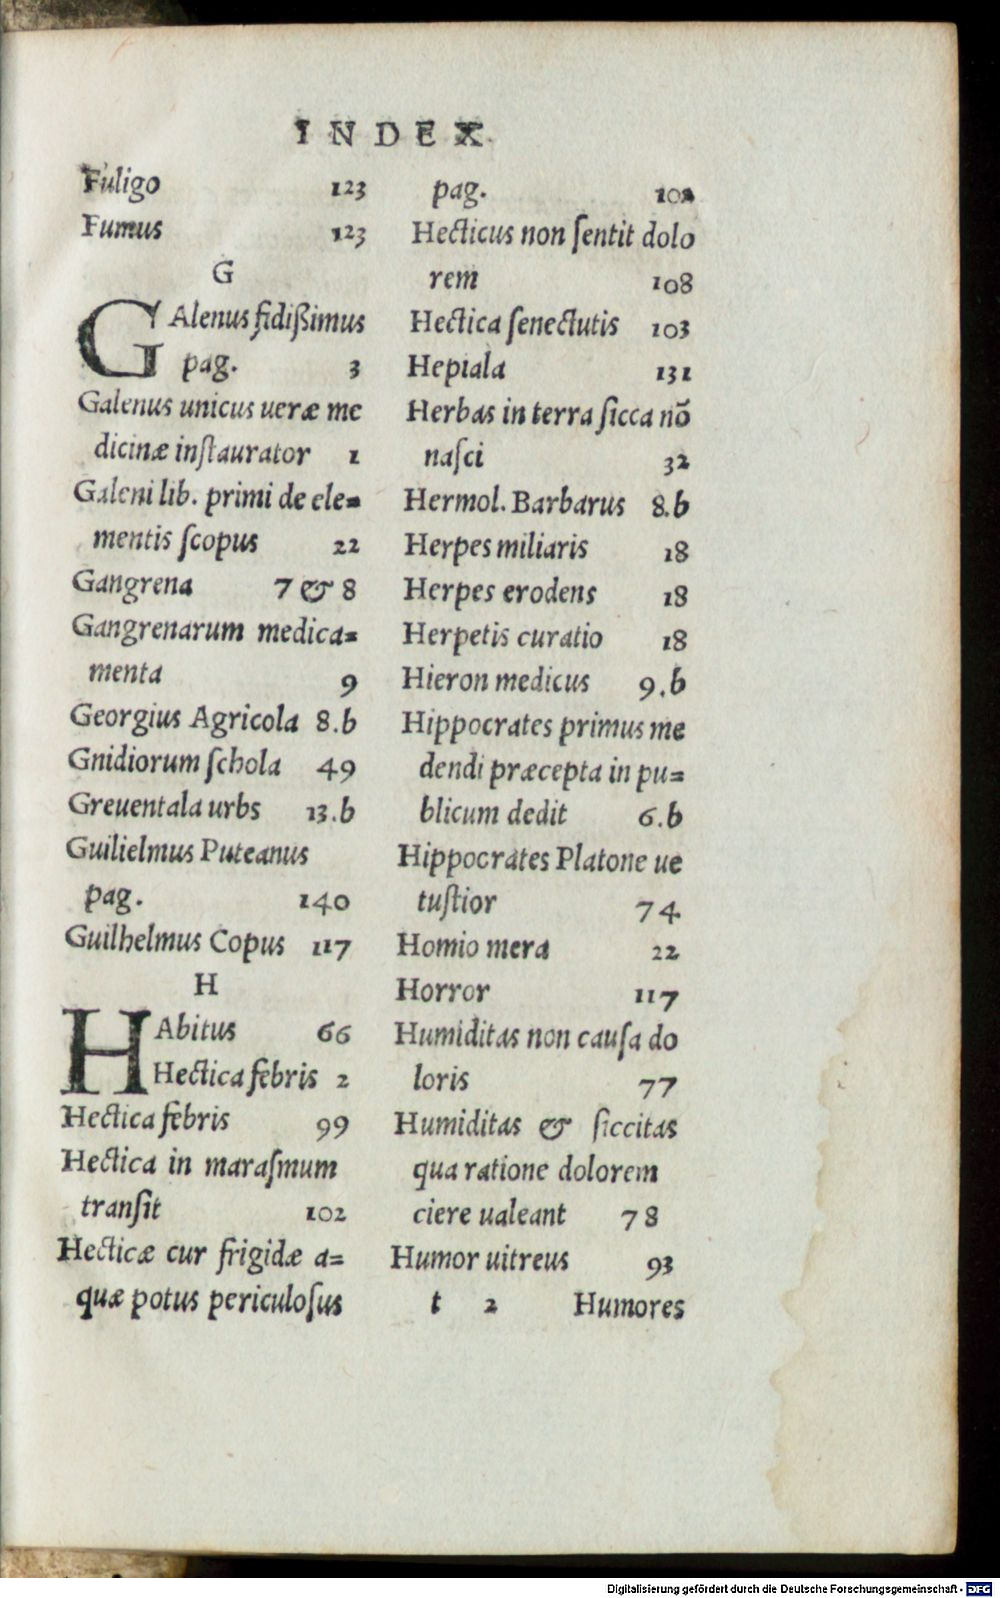 INDEX
Fuligo 123
Fumus 123
G
GAlenus fidißimus
pag. 3
Galenus unicus ueræ me
dicinæ inſtaurator 1
Galeni lib. primi de ele=
mentis ſcopus 22
Gangrena 7 & 8
Gangrenarum medica=
menta 9
Georgius Agricola 8.b
Gnidiorum ſchola 49
Greuentala urbs 13.b
Guilielmus Puteanus
pag. 140
Guilhelmus Copus 117
H
HAbitus 66
Hectica febris 2
Hectica febris 99
Hectica in maraſmum
tranſit 102
Hecticæ cur frigidæ a=
quæ potus periculoſus
pag. 102
Hecticus non ſentit dolo
rem 108
Hectica ſenectutis 103
Hepiala 131
Herbas in terra ſicca nō
naſci 32
Hermol. Barbarus 8.b
Herpes miliaris 18
Herpes erodens 18
Herpetis curatio 18
Hieron medicus 9.b
Hippocrates primus me
dendi præcepta in pu=
blicum dedit 6.b
Hippocrates Platone ue
tuſtior 74
Homio mera 22
Horror 117
Humiditas non cauſa do
loris 77
Humiditas & ſiccitas
qua ratione dolorem
ciere ualeant 78
Humor uitreus 93
t 2 Humores
Digitalisierung gefördert durch die Deutsche Forschungsgemeinschaft - DFG